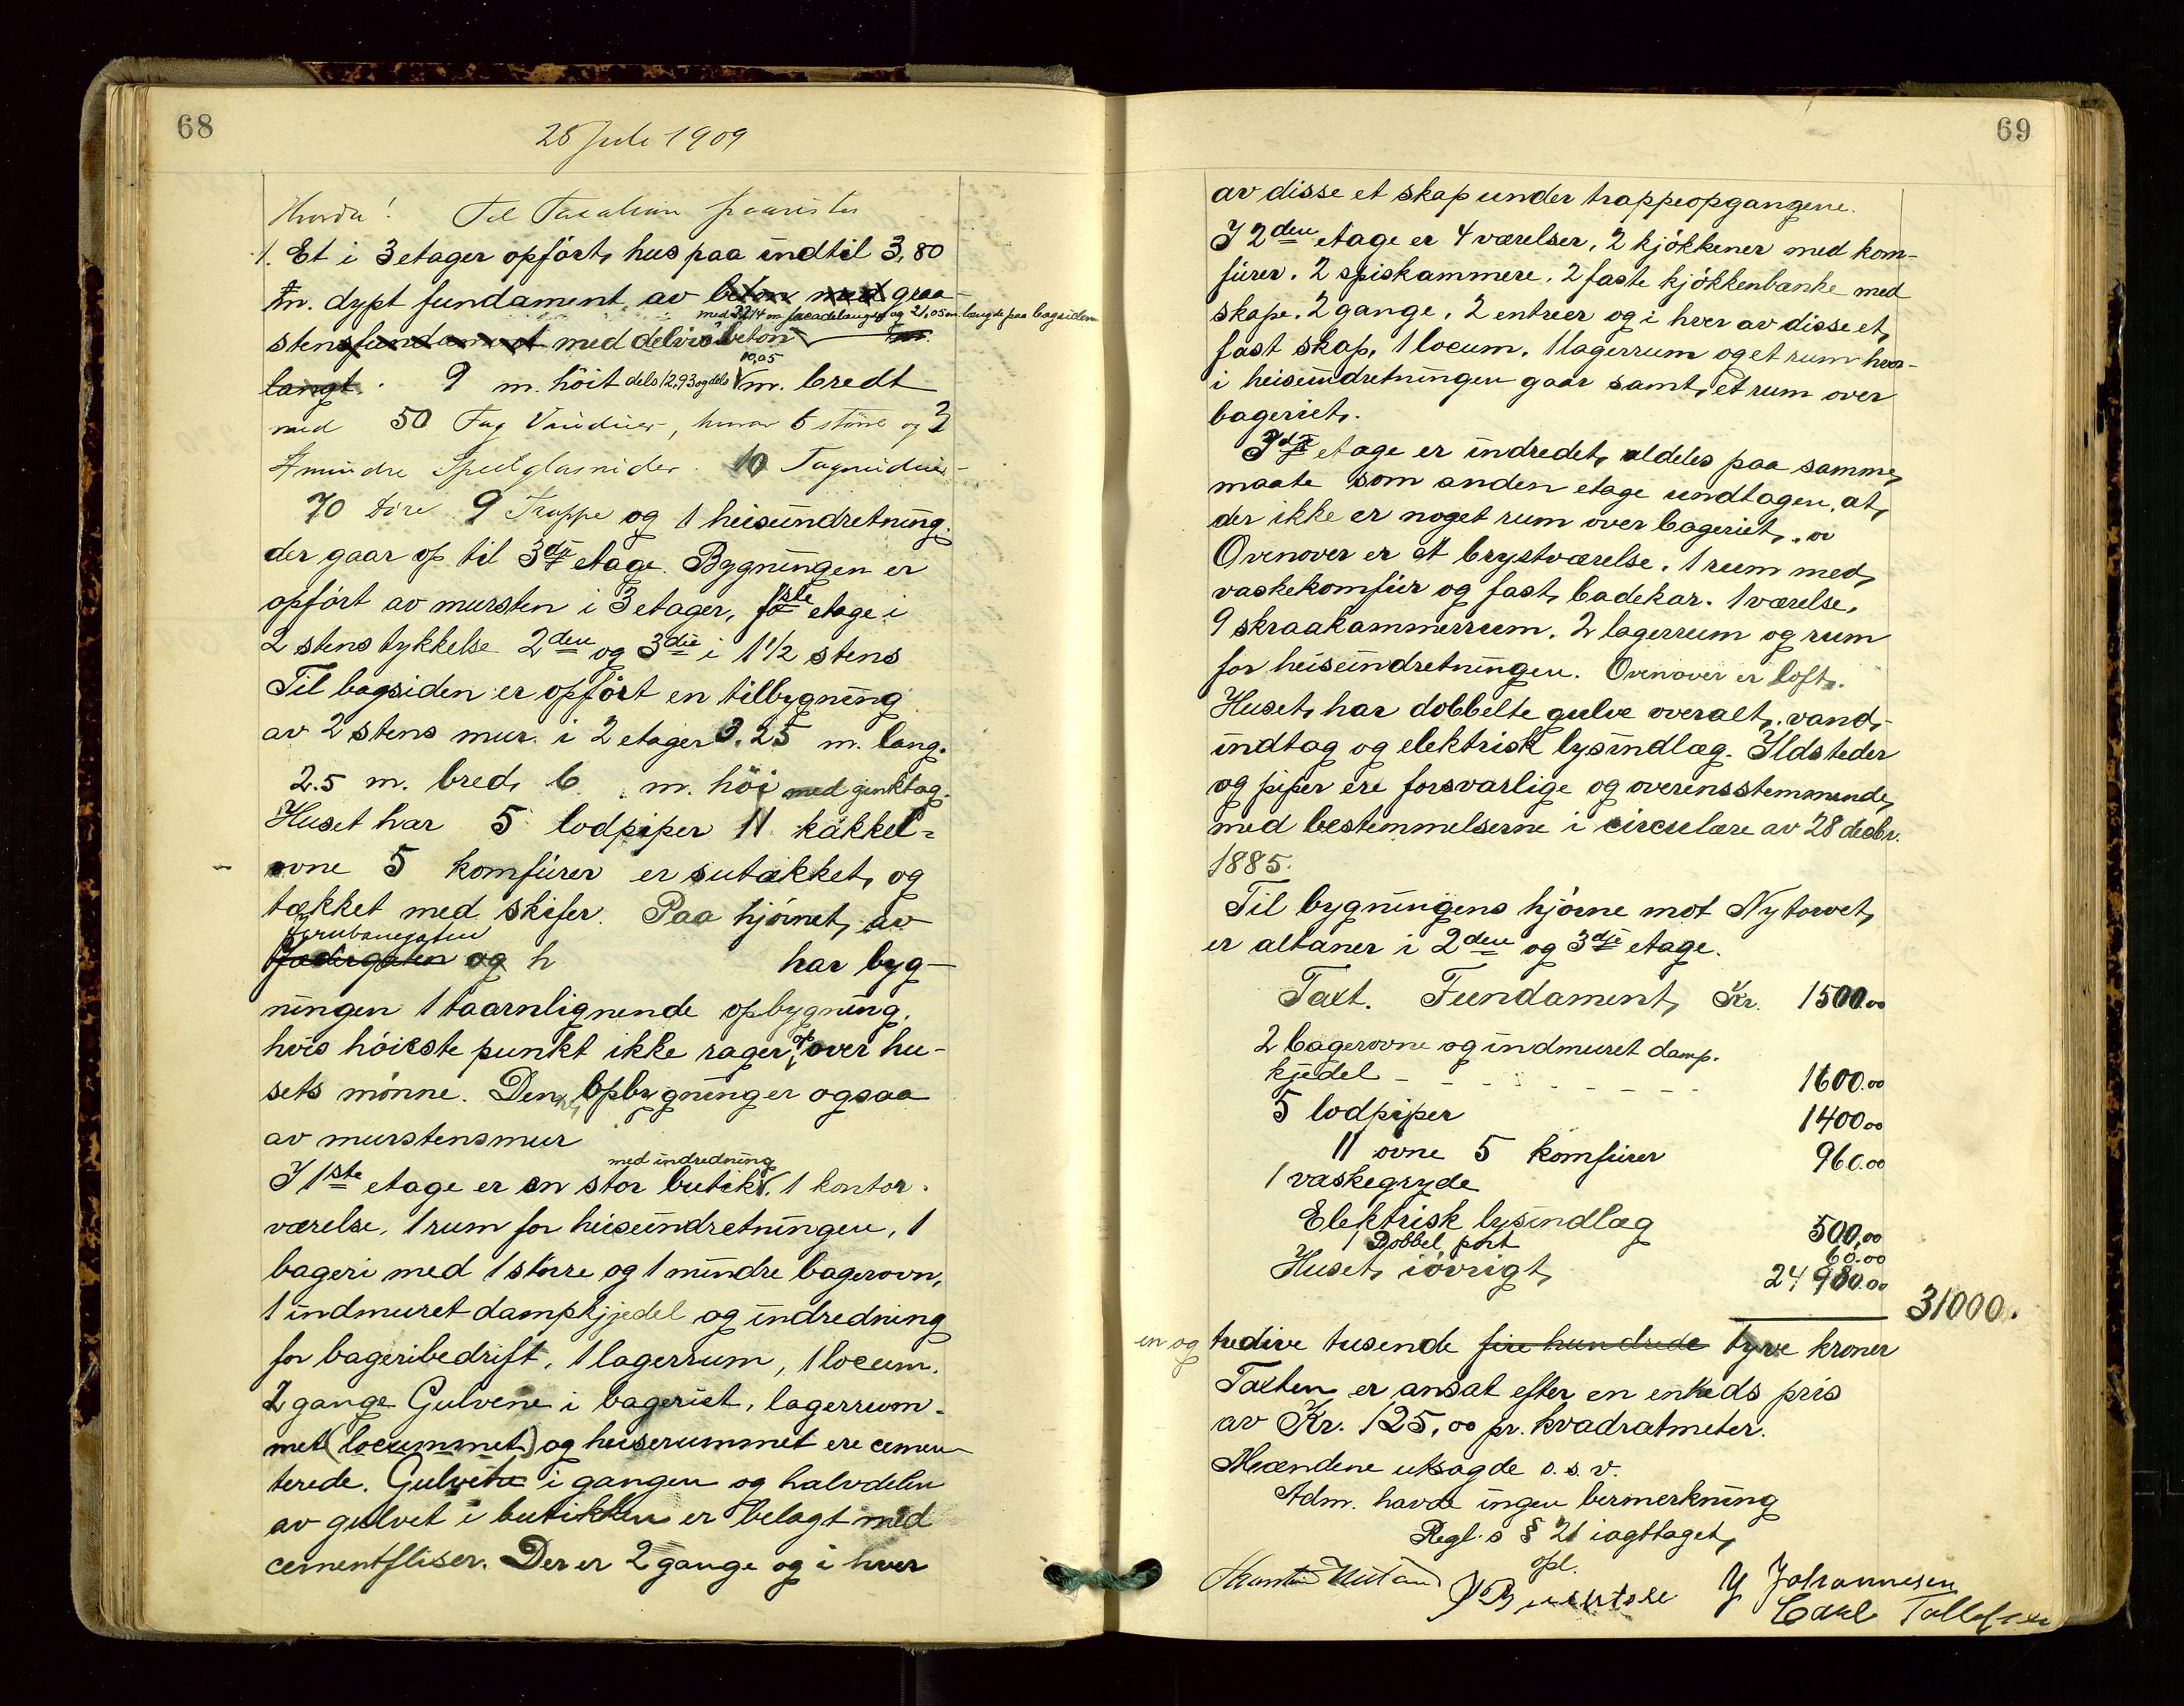 68
28 Juli 1909
Hvorda! Til Taxation paavistes
1. Et i 3 etager opført hus paa indtil 3,80
m. dypt fundament av beton med graa-
med 22,14 m facadelængde og 21,05 m længde paa bagsiden
stensfundament med delvis beton
langt. 9 m. høit dels 12,93 og dels 10,05 m. bredt
med 50 Fag Vinduer, hvorav 6 större og 2
mindre Speilglasruder. 10 Tagvinduer
70 döre 9 Trappe og 1 heiseindretning
der gaar op til 3die etage. Bygningen er
opført av mursten i 3 etager, 1ste etage i
2 stens tykkelse 2den og 3die i 1 1/2 stens
Til bagsiden er opført en tilbygning
av 2 stens mur i 2 etager 3.25 m. lang.
2.5 m. bred, 6 m. høi med zinktag.
Huset har 5 lodpiper 11 kakkel=
ovne 5 komfürer er sutækket, og
tækket med skifer. Paa hjørnet, av
Jernbanegaten
Jædergaten og h har byg-
ningen 1 taarnlignende opbygning,
hvis høieste punkt ikke rager op over hu-
sets mønne. Den opbygning er ogsaa
av murstensmur
med indredning
I 1ste etage er en stor butik, 1 kontor-
værelse, 1 rum for heiseindretningen, 1
bageri med 1 større og 1 mindre bagerovn,
1 indmuret dampkjedel og indredning
for bageribedrift, 1 lagerrum, 1 locum.
2 gange Gulvene i bageriet, lagerrum-
met (locummet) og heiserummet ere cemen-
terede. Gulvete i gangen og halvdelen
av gulvet i butikken er belagt med
cementfliser. Der er 2 gange og i hver
69
av disse et skap under trappeopgangene.
I 2den etage er 4 værelser, 2 kjøkkener med kom-
fürer. 2 spiskammere, 2 faste kjøkkenbænke med
skape. 2 gange, 2 entreer og i hver av disse et,
fast skap, 1 locum, 1 lagerrum og et rum hvor-
i heiseindretningen gaar samt, et rum over
bageriet.
3die etage er indredet, aldeles paa samme,
maate som anden etage undtagen, at,
der ikke er noget rum over bageriet,
Ovenover er et brystværelse, 1 rum med,
vaskekomfür og fast, badekar. 1 værelse,
9 skraakammerrum, 2 lagerrum og rum
for heiseindretningen. Ovenover er loft.
Huset, har dobbelte gulve overalt, vand-
indtag og elektrisk lysindlæg. Ildsteder
og piper ere forsvarlige og overensstemmende,
med bestemmelserne i circulære av 28 decbr.
1885.
Til bygningens hjørne mot Nytorvet,
er altaner i 2den og 3dje etage.
Taxt. Fundament, Kr. 1500.00
2 bagerovne og indmuret damp-
kjedel - - - - - - - - - 1600.00
5 lodpiper 1400.00
11 ovne 5 komfürer 960.00
1 vaskegryde
Elektrisk lysindlæg 500,00
1 Dobbel port 60.00
Huset, iøvrigt, 24980.00
31000.
en og tredive tusende fire hundrede tyve kroner
Taxten er ansat efter en enheds pris
av Kr. 125,00 pr. kvadratmeter.
Mændene utsagde o. s. v.
Adm. havde ingen bemerkning
Regl.s § 21 iagttaget,
opl.
Y Johannesen
Carl Tollefsen